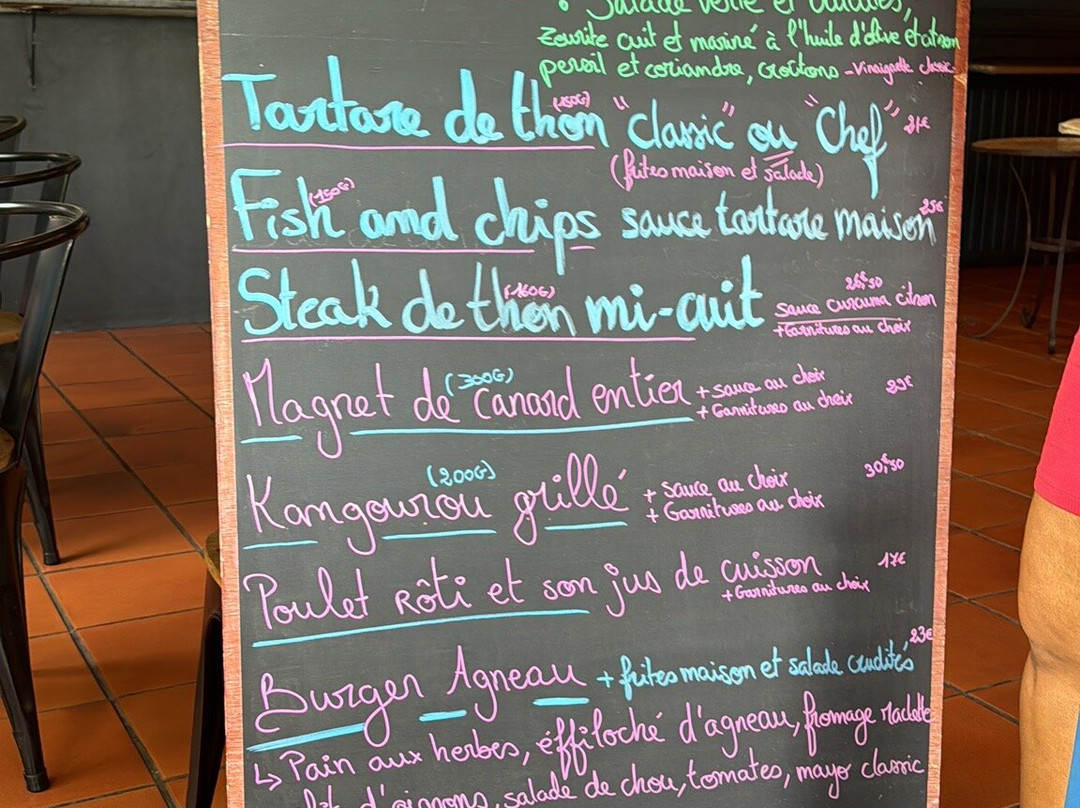 • Salade verte et crudités,
Zourite cuit et mariné à l'huile d'olive et citron
persil et coriandre, croûtons - Vinaigrette classic -
Tartare de thon (150G) "classic" ou "Chef" 21€
(frites maison et salade)
Fish (150G) and chips sauce tartare maison 25€
Steak de thon (160G) mi-cuit 26€50
sauce curcuma citron
+ Garnitures au choix
Magret de (300G) canard entier + sauce au choix 29€
+ Garnitures au choix
Kangourou (200G) grillé + sauce au choix 30€50
+ Garnitures au choix
Poulet rôti et son jus de cuisson 17€
+ Garnitures au choix
Burger Agneau + frites maison et salade crudités 23€
↳ Pain aux herbes, éffiloché d'agneau, fromage raclette
d'oignons, salade de chou, tomates, mayo classic